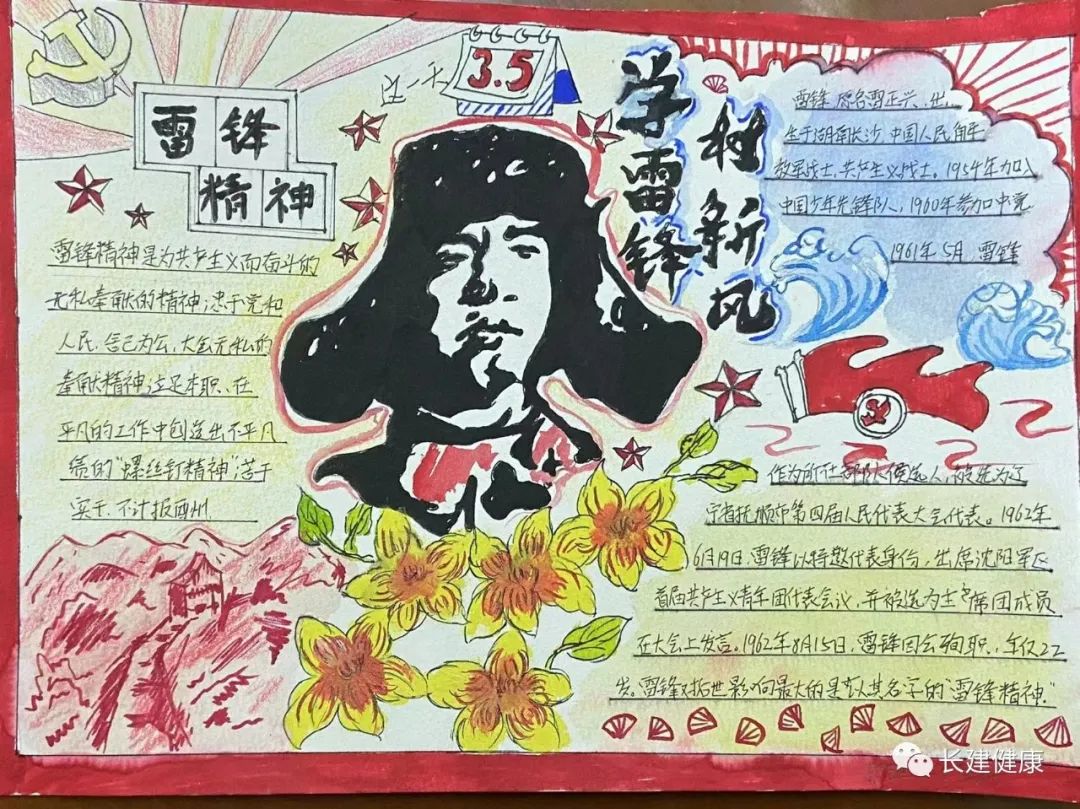 雷锋
精神
这一天
3.5
学雷锋
树新风
雷锋精神是为共产主义而奋斗的
无私奉献的精神,忠于党和
人民、舍己为公、大公无私的
奉献精神,立足本职、在
平凡的工作中创造出不平凡
绩的"螺丝钉精神",苦干
实干、不计报酬
雷锋,原名雷正兴,出
生于湖南长沙,中国人民解放
放军战士,共产主义战士。1954年加入
中国少年先锋队,1960年参加中党
1961年5月,雷锋
作为所在部队候选人,被选为辽
宁省抚顺市第四届人民代表大会代表。1962年
6月19日,雷锋以特邀代表身份,出席沈阳军区
首届共产主义青年团代表会议,并被选为主席团成员
在大会上发言。1962年8月15日,雷锋因公殉职,年仅22
岁。雷锋对后世影响最大的是以其名字的"雷锋精神"
长建健康